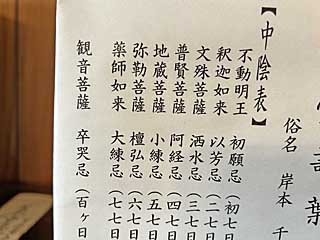 俗名 岸本 千
【中陰表】
不動明王 初願忌(初七日
釈迦如来 以芳忌(二七日
文殊菩薩 洒水忌(三七日
普賢菩薩 阿経忌(四七日
地蔵菩薩 小練忌(五七日
弥勒菩薩 檀弘忌(六七日
薬師如来 大練忌(七七日
観音菩薩 卒哭忌(百ヶ日